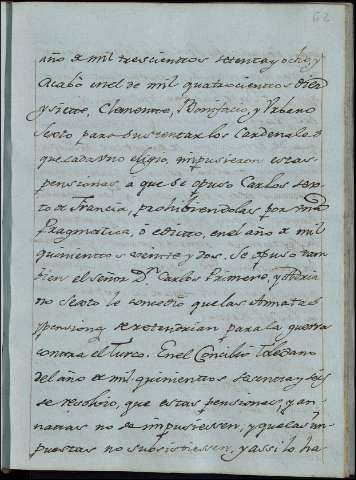 62
año de mil trescientos setenta y ocho, y
Acabò en el de mil quatrocientos diez
y siette, Clemente, Bonifacio, y Urbano
Sexto para sustentar los Cardenales
que cada uno eligiò, impusieron estas
pensiones, a que se opuso Carlos sex-
to de Francia, prohibiendolas por una
Pragmatica, ò edicto, en el año de mil
quinientos veinte y dos. Se opuso tam
bien el señor Dn. Carlos Primero, y Adria
no Sexto le concediò que las Annatas
y pensiones se retendrian para la guerra
contra el Turco. En el Concilio Toledano
del año de mil quinientos sesenta y seis
se resolviò, que estas pensiones, y an-
natas no se impusiessen, y que las im
puestas no subsistiessen, y assi lo ha-